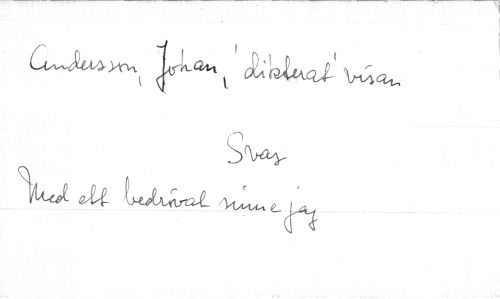 Andersson, Johan, 'dikterat' visan
Svag
Med ett bedrövat sinne jag